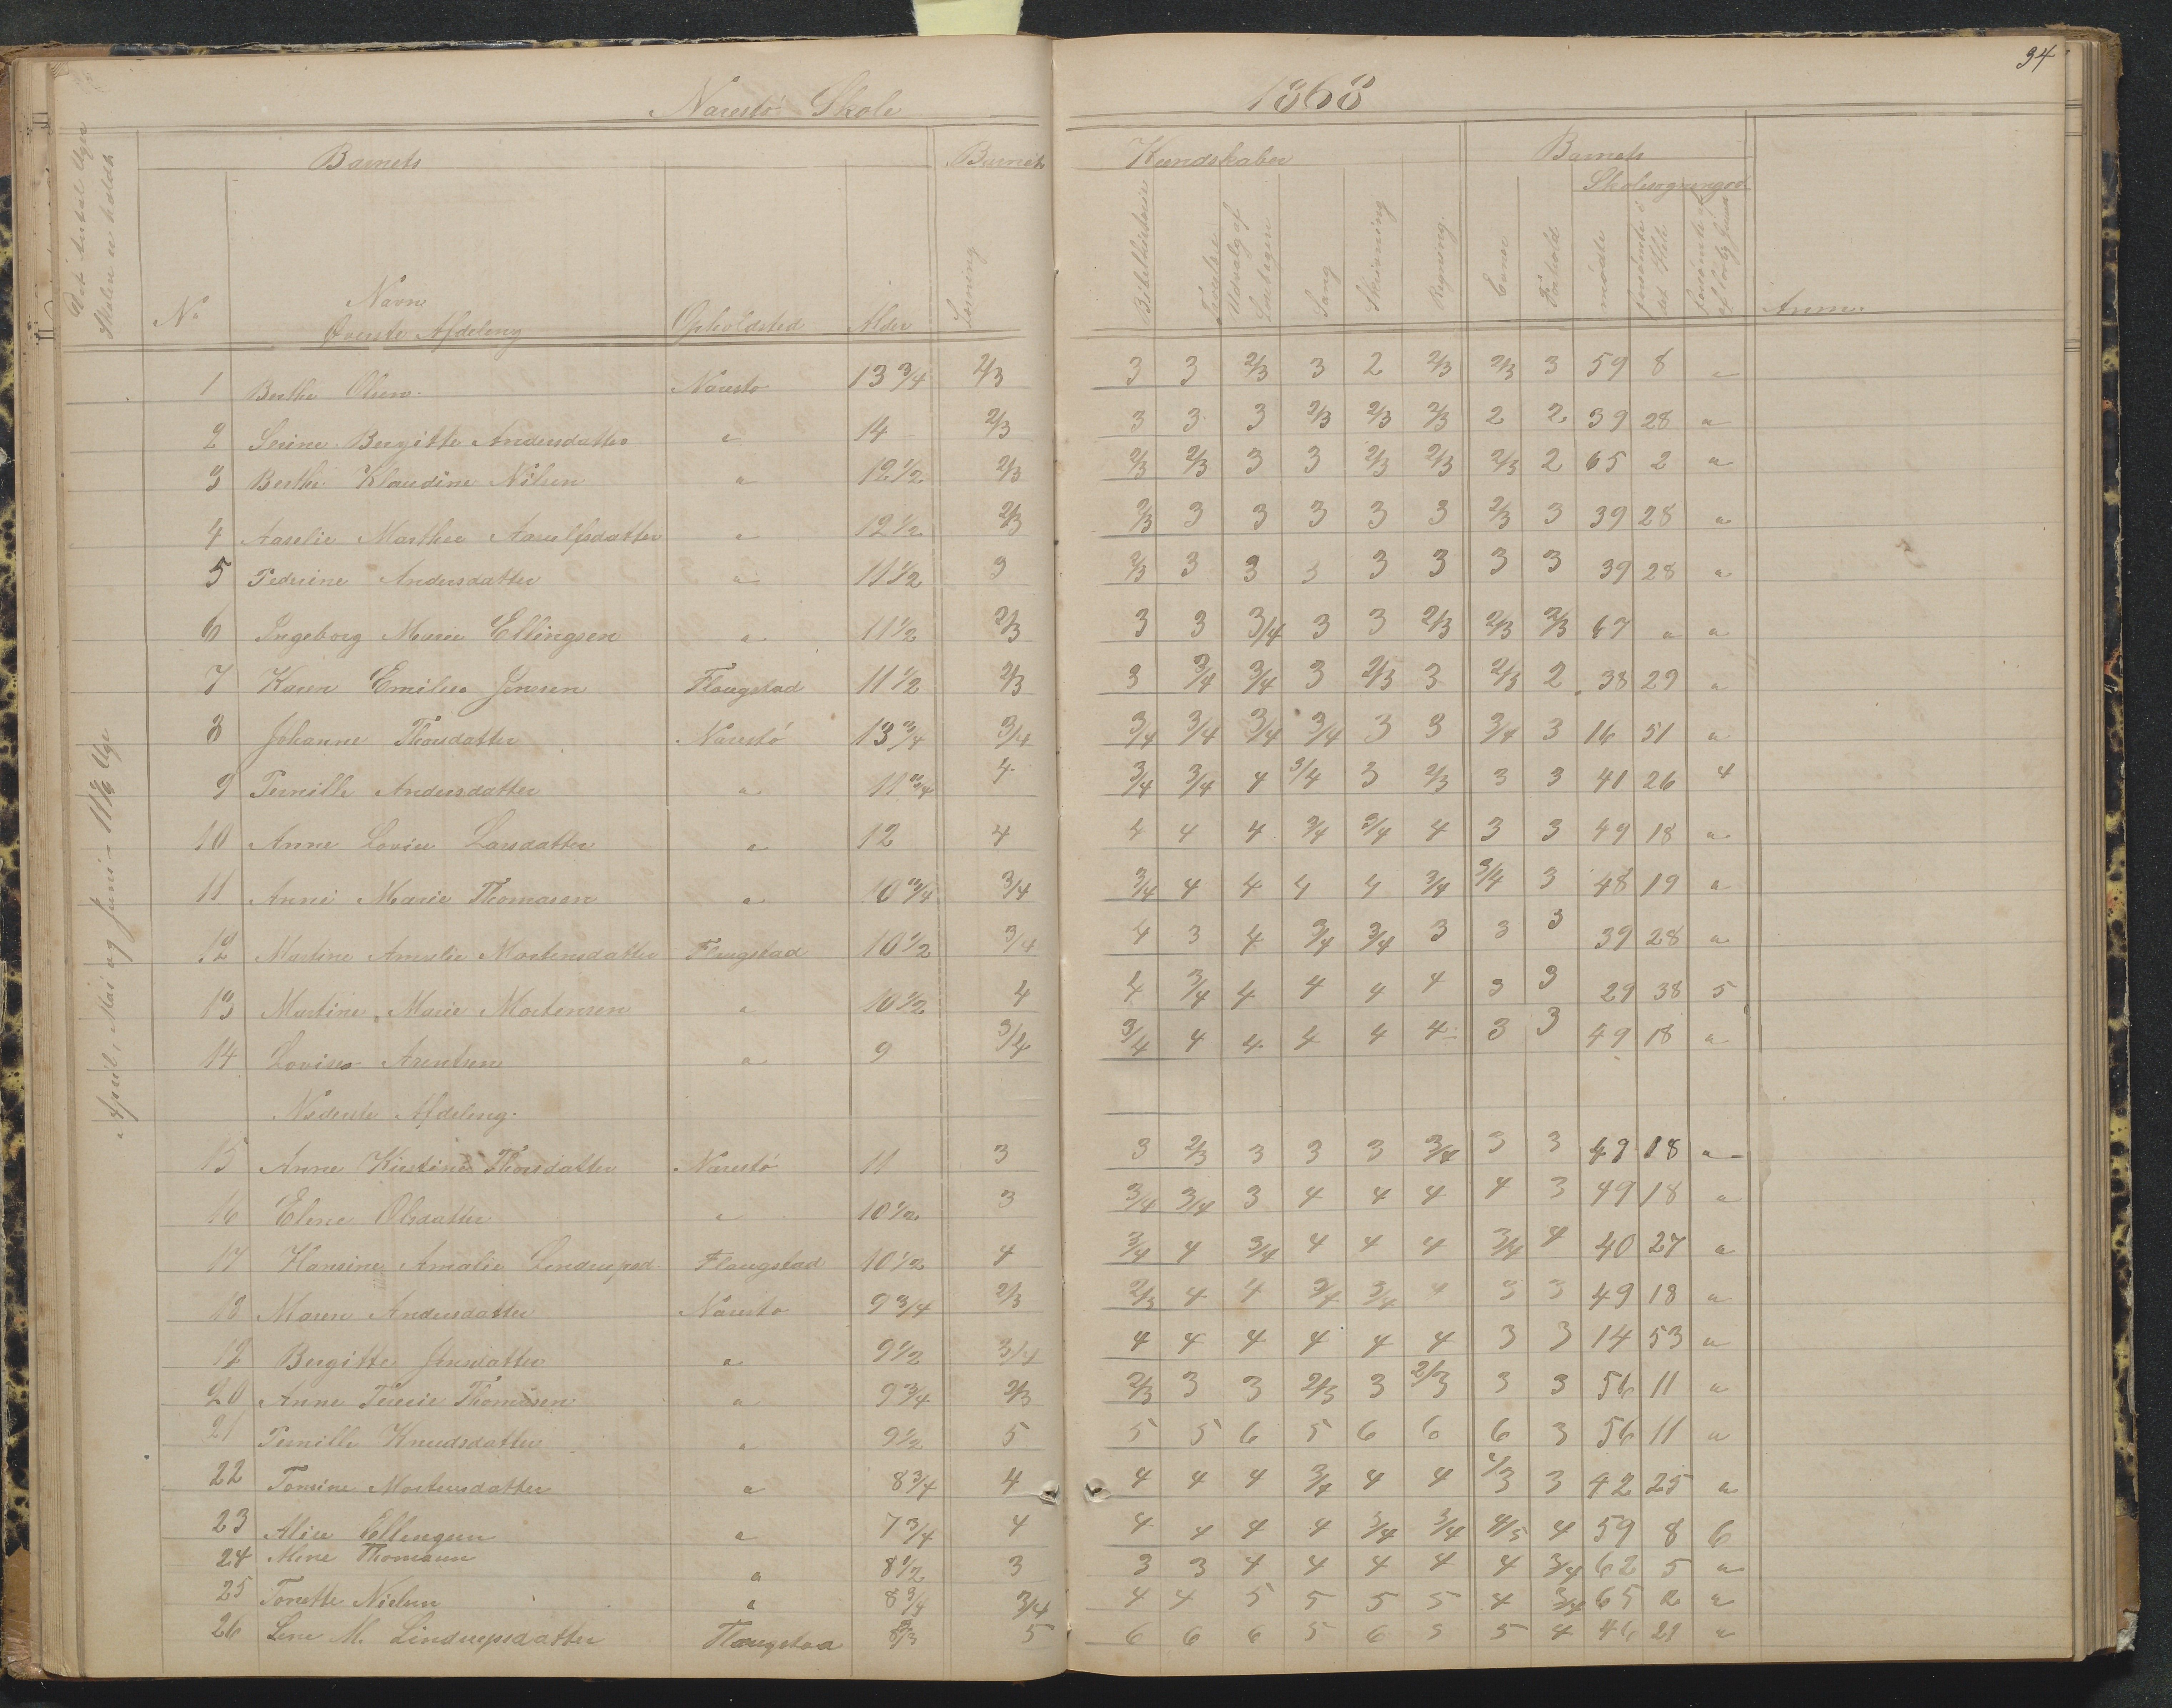 34
Narestö Skole 1868
Det Antal Uger Skolen er holdt
Barnets Barnets Kundskaber Barnets
Skolesøgningsd.
No Navn Opholdsted Alder Læsning Bibelhistorie Troeslære Udvalg af Læsebogen Sang Skrivning Regning Evner Forhold mødte forsömte i det Hele forsömte af lovlig Grund Anm.
Øverste Afdeling
April, Mai og Juni - 11 1/6 Uge
1 Berthe Olsen Narestø 13 3/4 2/3 3 3 2/3 3 2 2/3 2/3 3 59 8 "
2 Serine Bergitte Andersdatter " 14 2/3 3 3 3 2/3 2/3 2/3 2 2 39 28 "
3 Berthe Klaudine Nilsen " 12 1/2 2/3 2/3 2/3 3 3 2/3 2/3 2/3 2 65 2 "
4 Aaselie Marthea Aanulfsdatter " 12 1/2 2/3 2/3 3 3 3 3 3 2/3 3 39 28 "
5 Pederine Andersdatter " 11 1/2 3 2/3 3 3 3 3 3 3 3 39 28 "
6 Ingeborg Marie Ellingsen " 11 1/2 2/3 3 3 3/4 3 3 2/3 2/3 2/3 67 " "
7 Karen Emilie Jensen Flangstad 11 1/2 2/3 3 3/4 3/4 3 2/3 3 2/3 2 38 29 "
8 Johanne Thorsdatter Narestö 13 3/4 3/4 3/4 3/4 3/4 3/4 3 3 3/4 3 16 51 "
9 Pernille Andersdatter " 11 3/4 4 3/4 3/4 4 3/4 3 2/3 3 3 41 26 4
10 Anne Lovise Larsdatter " 12 4 4 4 4 3/4 3/4 4 3 3 49 18 "
11 Anne Marie Thomasen " 10 3/4 3/4 3/4 4 4 4 4 3/4 3/4 3 48 19 "
12 Martine Amalie Mortensdatter Flangstad 10 1/2 3/4 4 3 4 3/4 3/4 3 3 3 39 28 "
13 Martine Marie Mortensen " 10 1/2 4 4 3/4 4 4 4 4 3 3 29 38 5
14 Lovise Arentsen " 9 3/4 3/4 4 4 4 4 4 3 3 49 18 "
Nederste Afdeling.
15 Anne Kirstine Thorsdatter Narestö 11 3 3 2/3 3 3 3 3/4 3 3 49 18 "
16 Elene Olsdatter " 10 1/2 3 3/4 3/4 3 4 4 4 4 3 49 18 "
17 Hansine Amalie Lindrupsd. Flangstad 10 1/2 4 3/4 4 3/4 4 4 4 3/4 4 40 27 "
18 Maren Andersdatter Narestø 9 3/4 2/3 2/3 4 4 3/4 3/4 4 3 3 49 18 "
19 Bergitte Jensdatter " 9 1/2 3/4 4 4 4 4 4 4 3 3 14 53 "
20 Anne Terese Thomasen " 9 3/4 2/3 2/3 3 3 2/3 3 2/3 3 3 56 11 "
21 Pernille Knudsdatter " 9 1/2 5 5 5 6 5 6 6 6 3 56 11 "
22 Tomine Mortensdatter " 8 3/4 4 4 4 4 3/4 4 4 2/3 3 42 25 "
23 Alise Ellingsen " 7 3/4 4 4 4 4 4 3/4 3/4 4/5 4 59 8 6
24 Mine Thomasen " 8 1/2 3 3 3 4 4 4 4 4 3/4 62 5 "
25 Tonette Nielsen " 8 3/4 3/4 4 4 5 5 5 5 4 3/4 65 2 "
26 Lene M. Lindrupsdatter Flangstad 5 6 6 6 5 6 5 5 4 46 21 "